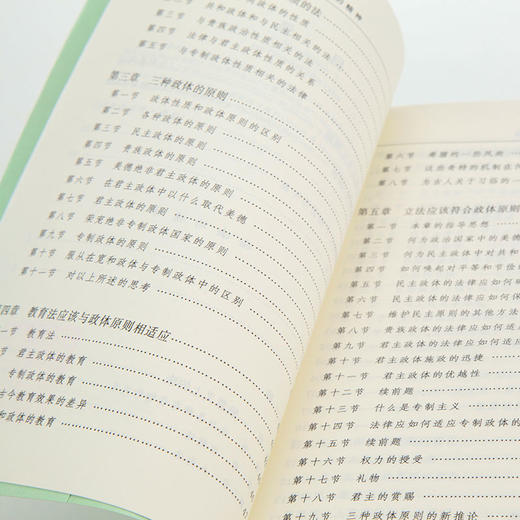 的精神
的法
共和政体的性质
第三节 共和政体和与民主相关的法
第四节 与贵族政治性质相关的法
第五节 法律与君主政体性质的关系
与专制政体性质相关的法律
第三章 三种政体的原则
第一节 政体性质和政体原则的区别
第二节 各种政体的原则
第三节 民主政体的原则
第四节 贵族政体的原则
第五节 美德绝非君主政体的原则
第六节 在君主政体中以什么取代美德
第七节 君主政体的原则
第八节 荣宠绝非专制政体国家的原则
第九节 专制政体的原则
第十节 服从在宽和政体与专制政体中的区别
第十一节 对以上所述的思考
第四章 教育法应该与政体原则相适应
一节 教育法
节 君主政体的教育
专制政体的教育
古今教育效果的差异
和政体的教育
第六节 希腊的一些风尚
第七节 这些奇特的机制在什
第八节 为古人关于习俗的一
第五章 立法应该符合政体原则
第一节 本章的指导思想
第二节 何为政治国家中的美德
第三节 何为民主政体中对共和
第四节 如何唤起对平等和节俭
第五节 民主政体的法律应如何
第六节 民主政体的法律应如何保
第七节 维护民主原则的其他方法
第八节 贵族政体的法律应如何适应
第九节 君主政体的法律应如何适应
第十节 君主政体施政的迅捷
第十一节 君主政体的优越性
第十二节 续前题
第十三节 什么是专制主义
第十四节 法律应如何适应专制政体的
第十五节 续前题
第十六节 权力的授受
第十七节 礼物
第十八节 君主的赏赐
第十九节 三种政体原则的新推论